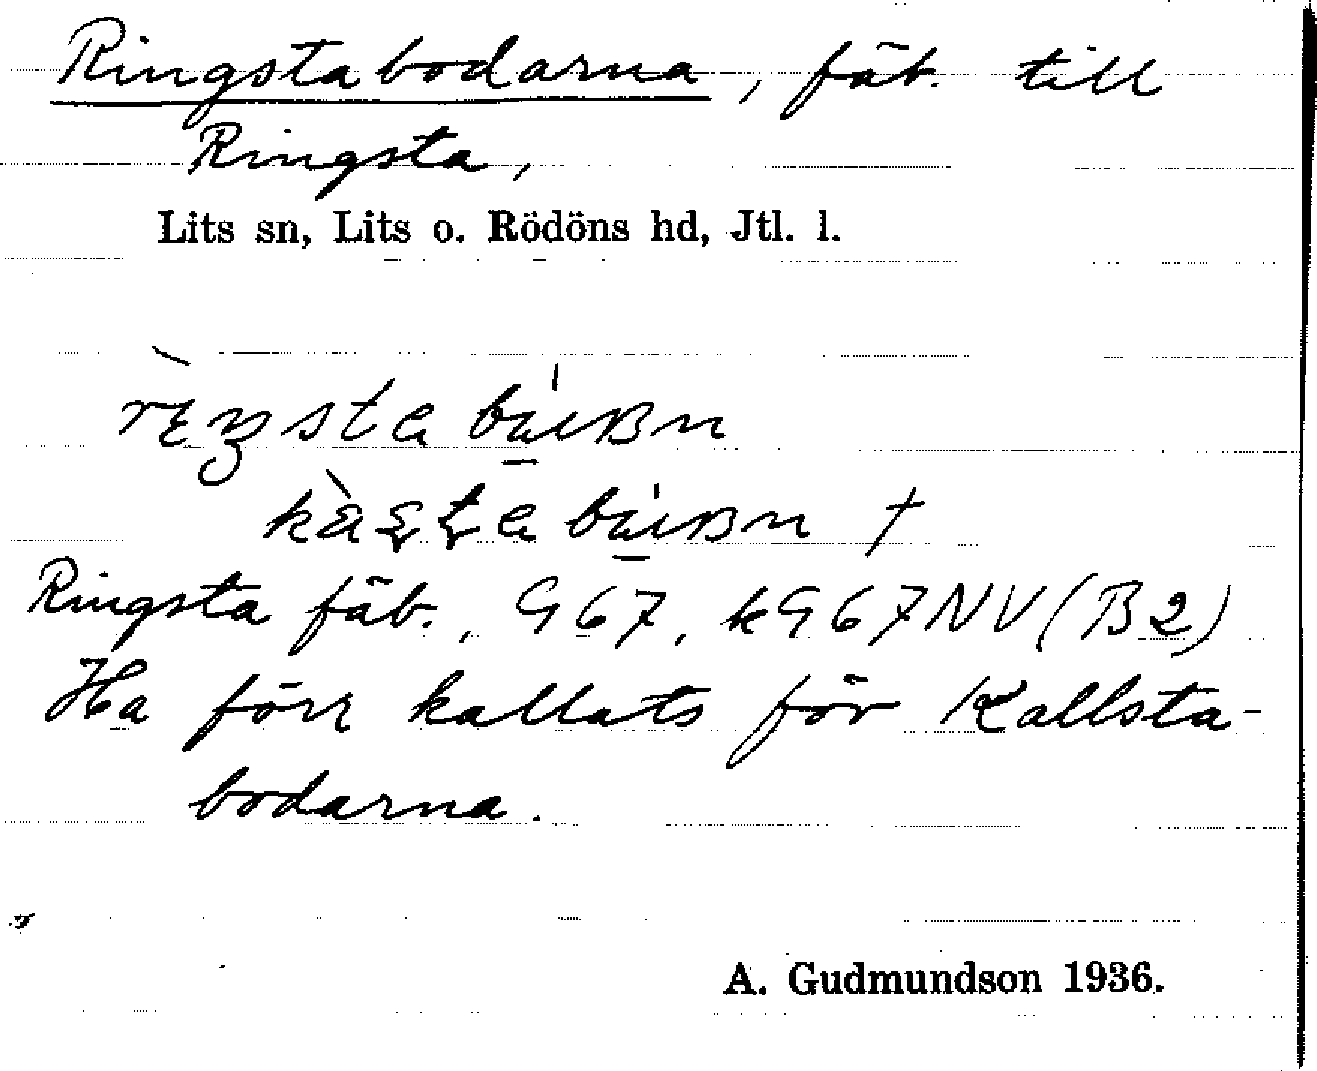 Ringstabodarna, fäb. till
Ringsta,
Lits sn, Lits o. Rödöns hd, Jtl. l.
Ringsta fäb., G67, kG67NV(B2)
Ha förr kallats för Kallsta-
bodarna.
A. Gudmundson 1936.